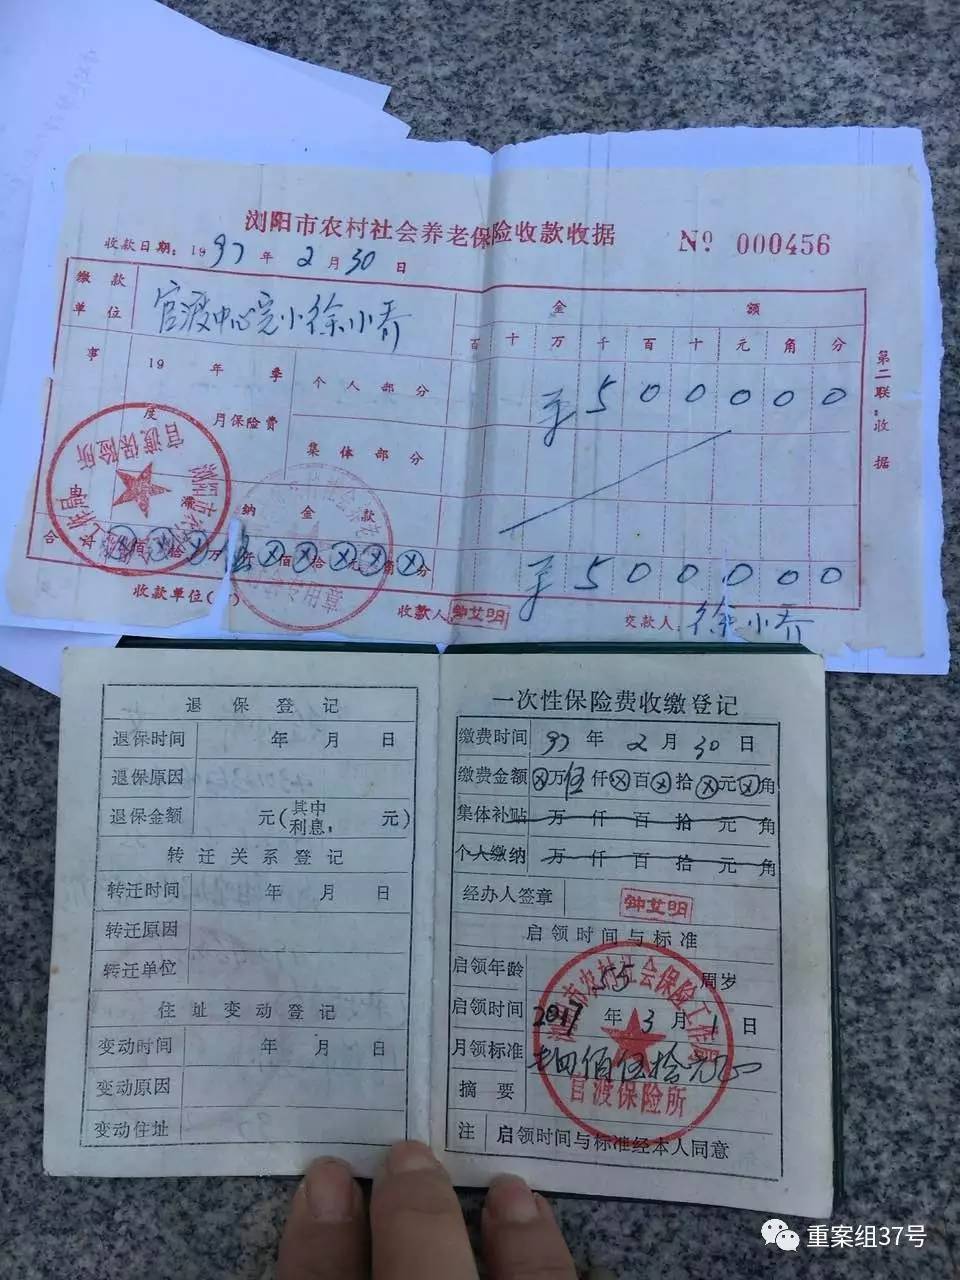 浏阳市农村社会养老保险收款收据
№ 000456
收款日期：1997年2月30日
缴款单位 官渡中心完小徐小乔
金额
百十万千百十元角分
事
19 年 季度
月保险费
个人部分 500000
集体部分
滞纳金款
合计 ⊗佰⊗拾⊗万伍仟⊗佰⊗拾⊗元⊗角⊗分
500000
收款单位(
收款人 钟艾明
交款人 徐小乔
第二联：收据
浏阳市农
官渡保险所
退保登记
退保时间 年 月 日
退保原因
退保金额 元(其中利息： 元)
转迁关系登记
转迁时间 年 月 日
转迁原因
转迁单位
住址变动登记
变动时间 年 月 日
变动原因
变动住址
一次性保险费收缴登记
缴费时间 97年2月30日
缴费金额 ⊗万伍仟⊗百⊗拾⊗元⊗角
集体补贴 万仟百拾元角
个人缴纳 万仟百拾元角
经办人签章 钟艾明
启领时间与标准
启领年龄 55周岁
启领时间 2017年3月1日
月领标准 佰伍拾元
摘要
注 启领时间与标准经本人同意
市农村社会保险工作
官渡保险所
重案组37号